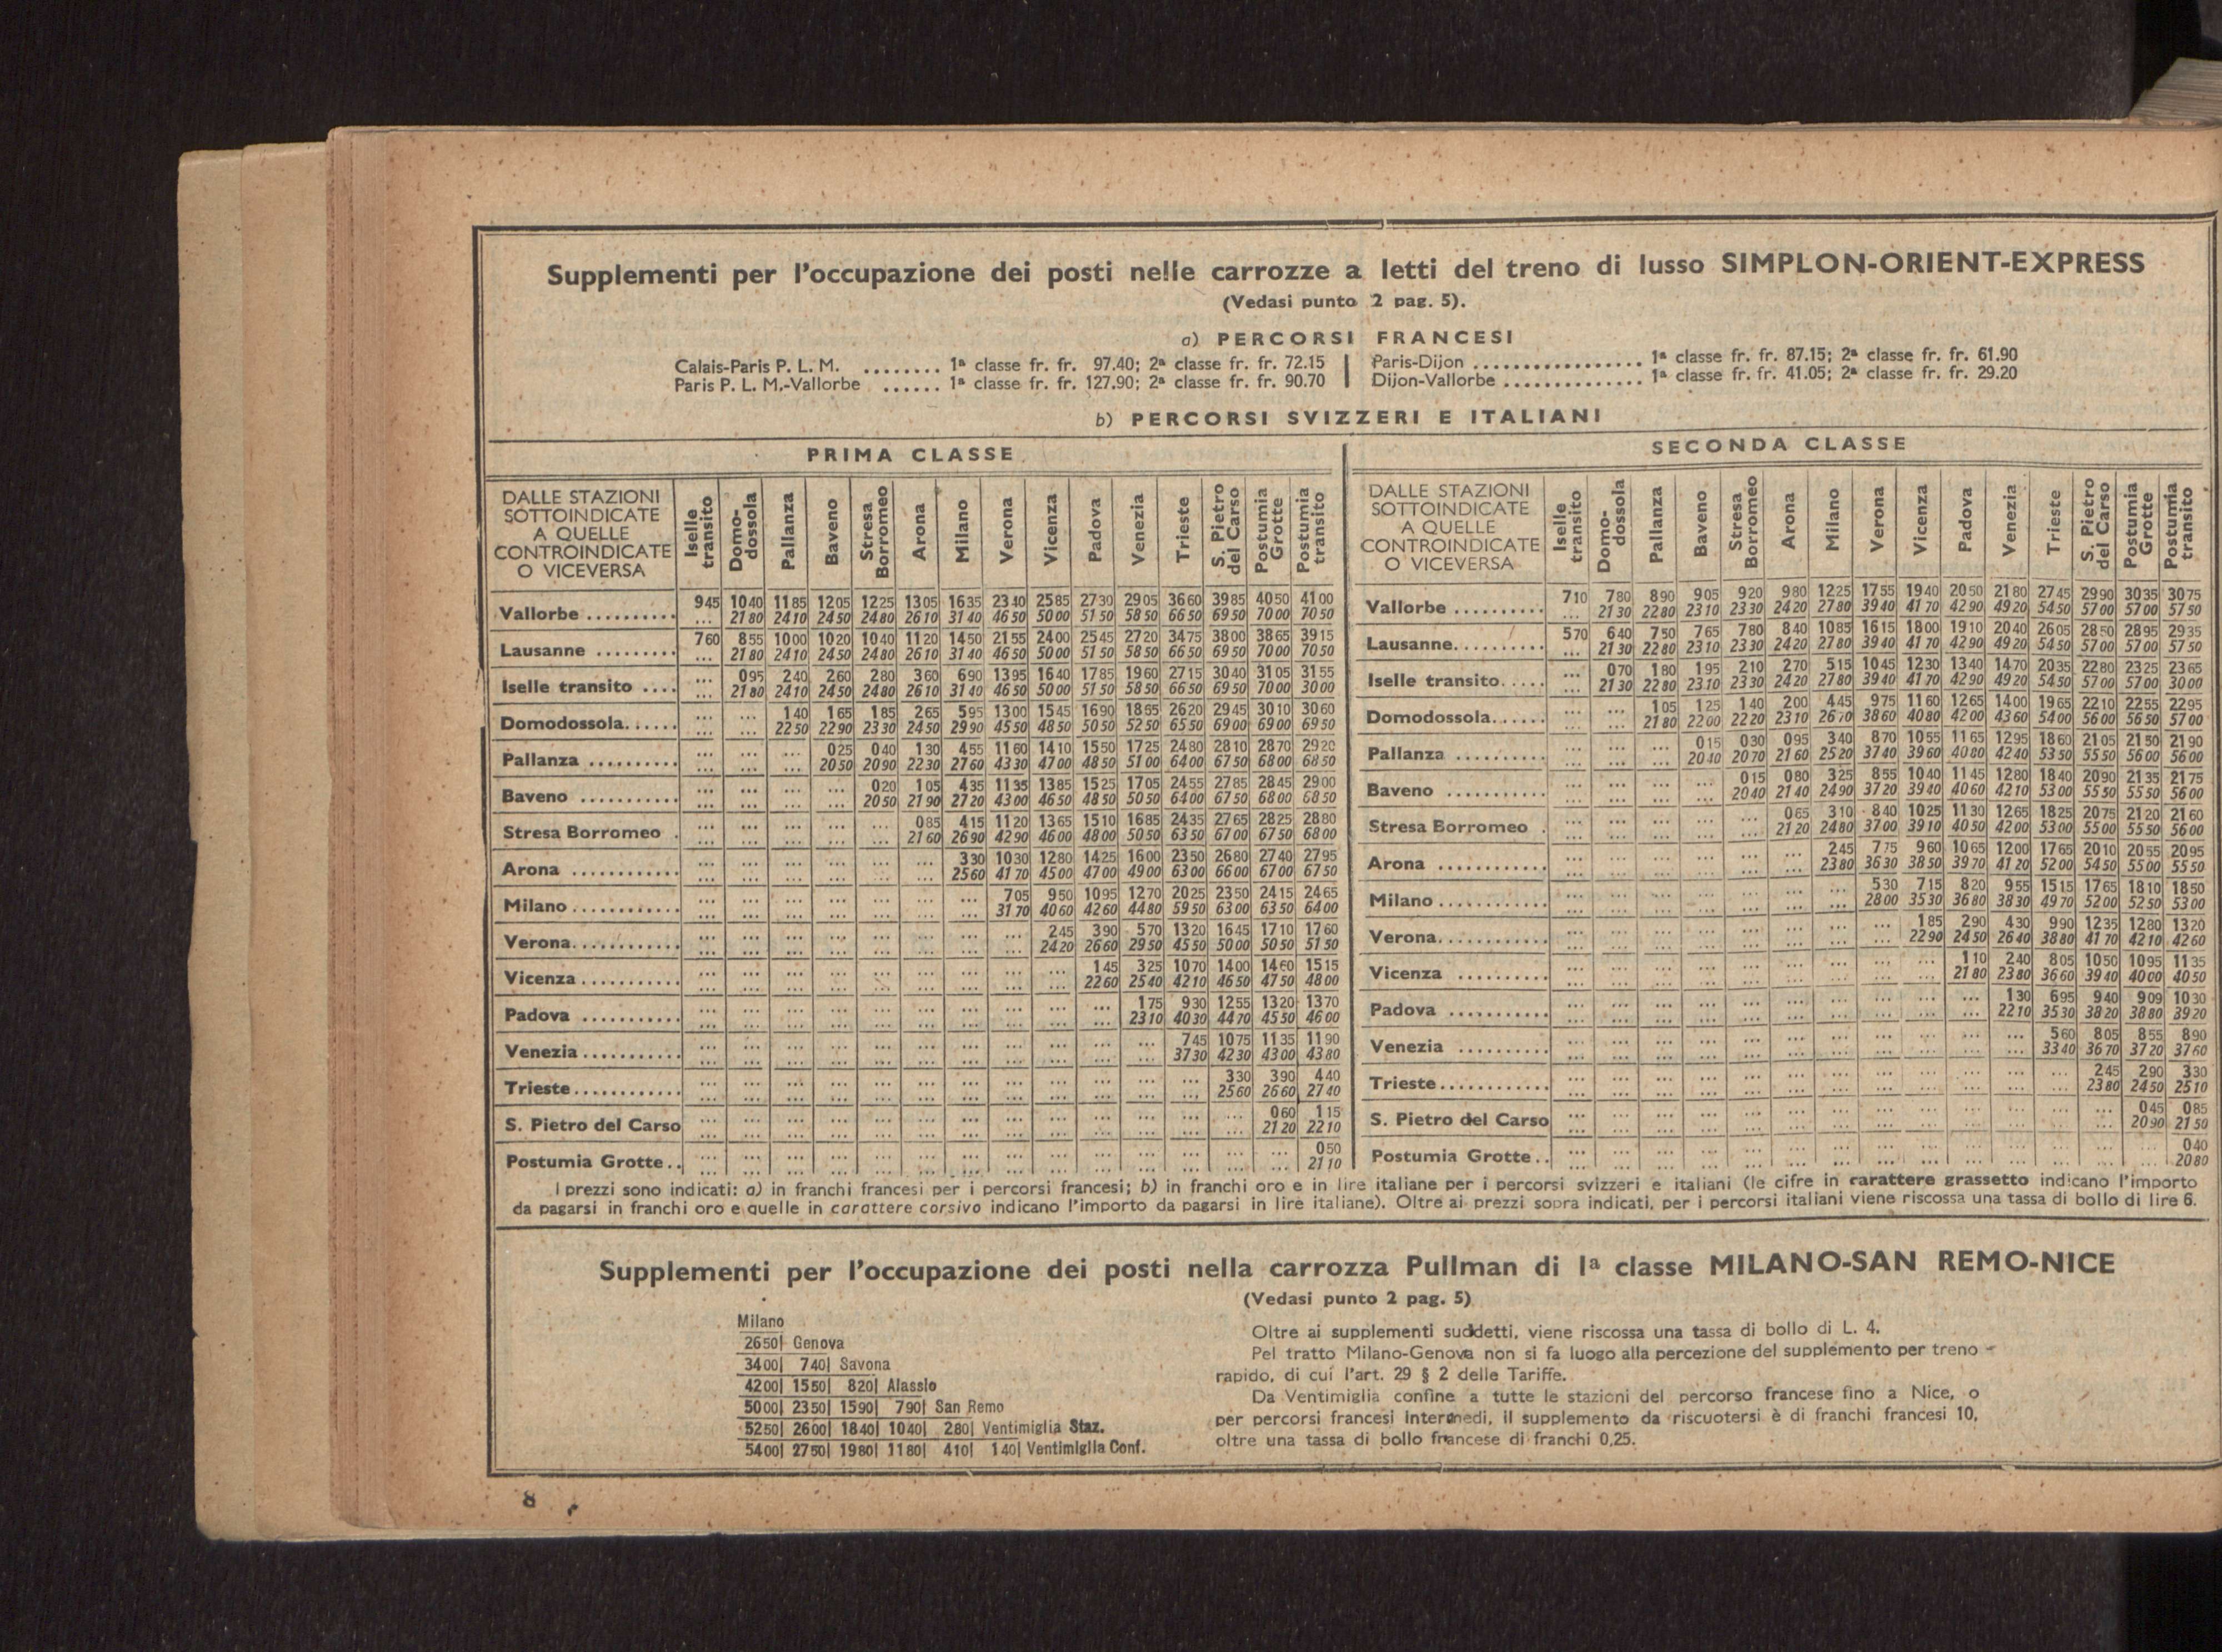 Supplementi per l'occupazione dei posti nelle carrozze a letti del treno di lusso SIMPLON-ORIENT-EXPRESS
(Vedasi punto 2 pag. 5).
a) PERCORSI FRANCESI
Calais-Paris P. L. M. ........ 1ª classe fr. fr. 97.40; 2ª classe fr. fr. 72.15
Paris P. L. M.-Vallorbe ...... 1ª classe fr. fr. 127.90; 2ª classe fr. fr. 90.70
Paris-Dijon ................ 1ª classe fr. fr. 87.15; 2ª classe fr. fr. 61.90
Dijon-Vallorbe ............. 1ª classe fr. fr. 41.05; 2ª classe fr. fr. 29.20
b) PERCORSI SVIZZERI E ITALIANI
PRIMA CLASSE
DALLE STAZIONI SOTTOINDICATE A QUELLE CONTROINDICATE O VICEVERSA | Iselle transito | Domo-dossola | Pallanza | Baveno | Stresa Borromeo | Arona | Milano | Verona | Vicenza | Padova | Venezia | Trieste | S. Pietro del Carso | Postumia Grotte | Postumia transito
Vallorbe .......... 945 1040 1185 1205 1225 1305 1635 2340 2585 2730 2905 3660 3985 4050 4100
... 2180 2410 2450 2480 2610 3140 4650 5000 5150 5850 6650 6950 7000 7050
Lausanne ......... 760 855 1000 1020 1040 1120 1450 2155 2400 2545 2720 3475 3800 3865 3915
... 2180 2410 2450 2480 2610 3140 4650 5000 5150 5850 6650 6950 7000 7050
Iselle transito .... ... 095 240 260 280 360 690 1395 1640 1785 1960 2715 3040 3105 3155
... 2180 2410 2450 2480 2610 3140 4650 5000 5150 5850 6650 6950 7000 3000
Domodossola...... ... ... 140 165 185 265 595 1300 1545 1690 1865 2620 2945 3010 3060
... ... 2250 2290 2330 2450 2990 4550 4850 5050 5250 6550 6900 6900 6950
Pallanza .......... ... ... ... 025 040 130 455 1160 1410 1550 1725 2480 2810 2870 2920
... ... ... 2050 2090 2230 2760 4330 4700 4850 5100 6400 6750 6800 6850
Baveno ........... ... ... ... ... 020 105 435 1135 1385 1525 1705 2455 2785 2845 2900
... ... ... ... 2050 2190 2720 4300 4650 4850 5050 6400 6750 6800 6850
Stresa Borromeo . ... ... ... ... ... 085 415 1120 1365 1510 1685 2435 2765 2825 2880
... ... ... ... ... 2160 2690 4290 4600 4800 5050 6350 6700 6750 6800
Arona ............ ... ... ... ... ... ... 330 1030 1280 1425 1600 2350 2680 2740 2795
... ... ... ... ... ... 2560 4170 4500 4700 4900 6300 6600 6700 6750
Milano............ ... ... ... ... ... ... ... 705 950 1095 1270 2025 2350 2415 2465
... ... ... ... ... ... ... 3170 4060 4260 4480 5950 6300 6350 6400
Verona............ ... ... ... ... ... ... ... ... 245 390 570 1320 1645 1710 1760
... ... ... ... ... ... ... ... 2420 2660 2950 4550 5000 5050 5150
Vicenza........... ... ... ... ... ... ... ... ... ... 145 325 1070 1400 1460 1515
... ... ... ... ... ... ... ... ... 2260 2540 4210 4650 4750 4800
Padova ........... ... ... ... ... ... ... ... ... ... ... 175 930 1255 1320 1370
... ... ... ... ... ... ... ... ... ... 2310 4030 4470 4550 4600
Venezia........... ... ... ... ... ... ... ... ... ... ... ... 745 1075 1135 1190
... ... ... ... ... ... ... ... ... ... ... 3730 4230 4300 4380
Trieste............ ... ... ... ... ... ... ... ... ... ... ... ... 330 390 440
... ... ... ... ... ... ... ... ... ... ... ... 2560 2660 2740
S. Pietro del Carso ... ... ... ... ... ... ... ... ... ... ... ... ... 060 115
... ... ... ... ... ... ... ... ... ... ... ... ... 2120 2210
Postumia Grotte.. ... ... ... ... ... ... ... ... ... ... ... ... ... ... 050
... ... ... ... ... ... ... ... ... ... ... ... ... ... 2110
SECONDA CLASSE
DALLE STAZIONI SOTTOINDICATE A QUELLE CONTROINDICATE O VICEVERSA | Iselle transito | Domo-dossola | Pallanza | Baveno | Stresa Borromeo | Arona | Milano | Verona | Vicenza | Padova | Venezia | Trieste | S. Pietro del Carso | Postumia Grotte | Postumia transito
Vallorbe .......... 710 780 890 905 920 980 1225 1755 1940 2050 2180 2745 2990 3035 3075
... 2130 2280 2310 2330 2420 2780 3940 4170 4290 4920 5450 5700 5700 5750
Lausanne.......... 570 640 750 765 780 840 1085 1615 1800 1910 2040 2605 2850 2895 2935
... 2130 2280 2310 2330 2420 2780 3940 4170 4290 4920 5450 5700 5700 5750
Iselle transito..... ... 070 180 195 210 270 515 1045 1230 1340 1470 2035 2280 2325 2365
... 2130 2280 2310 2330 2420 2780 3940 4170 4290 4920 5450 5700 5700 3000
Domodossola...... ... ... 105 125 140 200 445 975 1160 1265 1400 1965 2210 2255 2295
... ... 2180 2200 2220 2310 2670 3860 4080 4200 4360 5400 5600 5650 5700
Pallanza .......... ... ... ... 015 030 095 340 870 1055 1165 1295 1860 2105 2150 2190
... ... ... 2040 2070 2160 2520 3740 3960 4080 4240 5350 5550 5600 5600
Baveno ........... ... ... ... ... 015 080 325 855 1040 1145 1280 1840 2090 2135 2175
... ... ... ... 2040 2140 2490 3720 3940 4060 4210 5300 5550 5550 5600
Stresa Borromeo . ... ... ... ... ... 065 310 840 1025 1130 1265 1825 2075 2120 2160
... ... ... ... ... 2120 2480 3700 3910 4050 4200 5300 5500 5550 5600
Arona ............ ... ... ... ... ... ... 245 775 960 1065 1200 1765 2010 2055 2095
... ... ... ... ... ... 2380 3630 3850 3970 4120 5200 5450 5500 5550
Milano............ ... ... ... ... ... ... ... 530 715 820 955 1515 1765 1810 1850
... ... ... ... ... ... ... 2800 3530 3680 3830 4970 5200 5250 5300
Verona............ ... ... ... ... ... ... ... ... 185 290 430 990 1235 1280 1320
... ... ... ... ... ... ... ... 2290 2450 2640 3880 4170 4210 4260
Vicenza .......... ... ... ... ... ... ... ... ... ... 110 240 805 1050 1095 1135
... ... ... ... ... ... ... ... ... 2180 2380 3660 3940 4000 4050
Padova ........... ... ... ... ... ... ... ... ... ... ... 130 695 940 909 1030
... ... ... ... ... ... ... ... ... ... 2210 3530 3820 3880 3920
Venezia .......... ... ... ... ... ... ... ... ... ... ... ... 560 805 855 890
... ... ... ... ... ... ... ... ... ... ... 3340 3670 3720 3760
Trieste............ ... ... ... ... ... ... ... ... ... ... ... ... 245 290 330
... ... ... ... ... ... ... ... ... ... ... ... 2380 2450 2510
S. Pietro del Carso ... ... ... ... ... ... ... ... ... ... ... ... ... 045 085
... ... ... ... ... ... ... ... ... ... ... ... ... 2090 2150
Postumia Grotte.. ... ... ... ... ... ... ... ... ... ... ... ... ... ... 040
... ... ... ... ... ... ... ... ... ... ... ... ... ... 2080
I prezzi sono indicati: a) in franchi francesi per i percorsi francesi; b) in franchi oro e in lire italiane per i percorsi svizzeri e italiani (le cifre in carattere grassetto indicano l'importo
da pagarsi in franchi oro e quelle in carattere corsivo indicano l'importo da pagarsi in lire italiane). Oltre ai prezzi sopra indicati, per i percorsi italiani viene riscossa una tassa di bollo di lire 6.
Supplementi per l'occupazione dei posti nella carrozza Pullman di Iª classe MILANO-SAN REMO-NICE
(Vedasi punto 2 pag. 5)
Milano
2650| Genova
3400| 740| Savona
4200| 1550| 820| Alassio
5000| 2350| 1590| 790| San Remo
5250| 2600| 1840| 1040| 280| Ventimiglia Staz.
5400| 2750| 1980| 1180| 410| 140| Ventimiglia Conf.
Oltre ai supplementi suddetti, viene riscossa una tassa di bollo di L. 4.
Pel tratto Milano-Genova non si fa luogo alla percezione del supplemento per treno
rapido, di cui l'art. 29 § 2 delle Tariffe.
Da Ventimiglia confine a tutte le stazioni del percorso francese fino a Nice, o
per percorsi francesi intermedi, il supplemento da riscuotersi è di franchi francesi 10,
oltre una tassa di bollo francese di franchi 0,25.
8